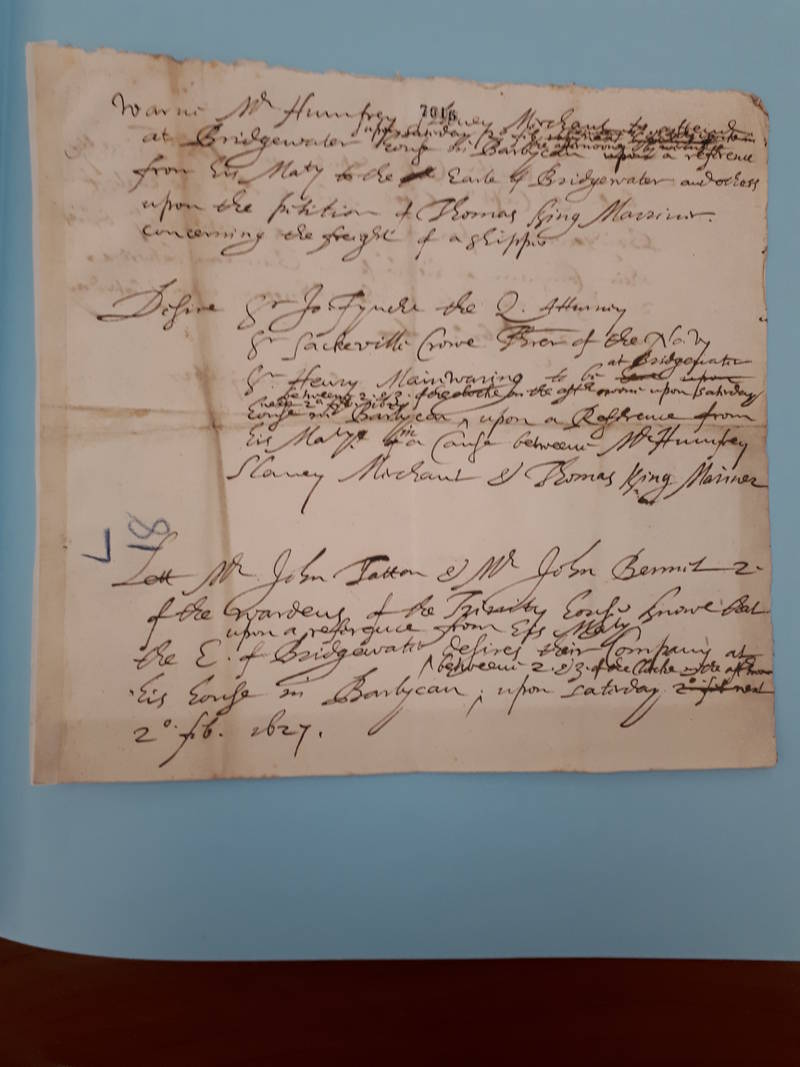 7018
Warne Mr Humfrey Slaney Merchant to attend
upon Saturday
at Bridgewater house in Barbycan upon a reference
from his Maty to the Earle of Bridgewater and others
upon the petition of Thomas King Marriner
concerning the freight of a shippe
Desire Sr Jo: Fynche the Q. Atturney
Sr Sackeville Crowe Trer of the Navy
at Bridgewater
Sr Henry Mainwaring to be upon
betweene 2. & 3. of the clocke in the afternoone upon Saturday
next 2o feb. 1627
house in Barbycan ^ upon a Reference from
his Maty in a Cause betweene Mr Humfrey
Slaney Merchant & Thomas King Mariner
L 18
Lett Mr John Tatton & Mr John Bennit 2.
of the wardens of the Trinity house knowe that
upon a reference from his Maty
the E. of Bridgewater desires their Company at
betweene 2. & 3. of the clocke in the afternoone
his house in Barbycan ^ upon Saturday 2o feb next
2o. feb. 1627.